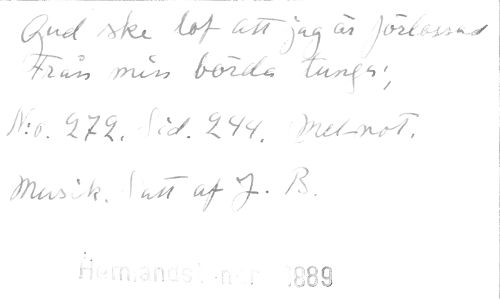 Gud ske lof att jag är förlossad
Från min börda tunga;
N:o. 272. Sid. 244. Mel-not.
Musik. Satt af J. B.
1889